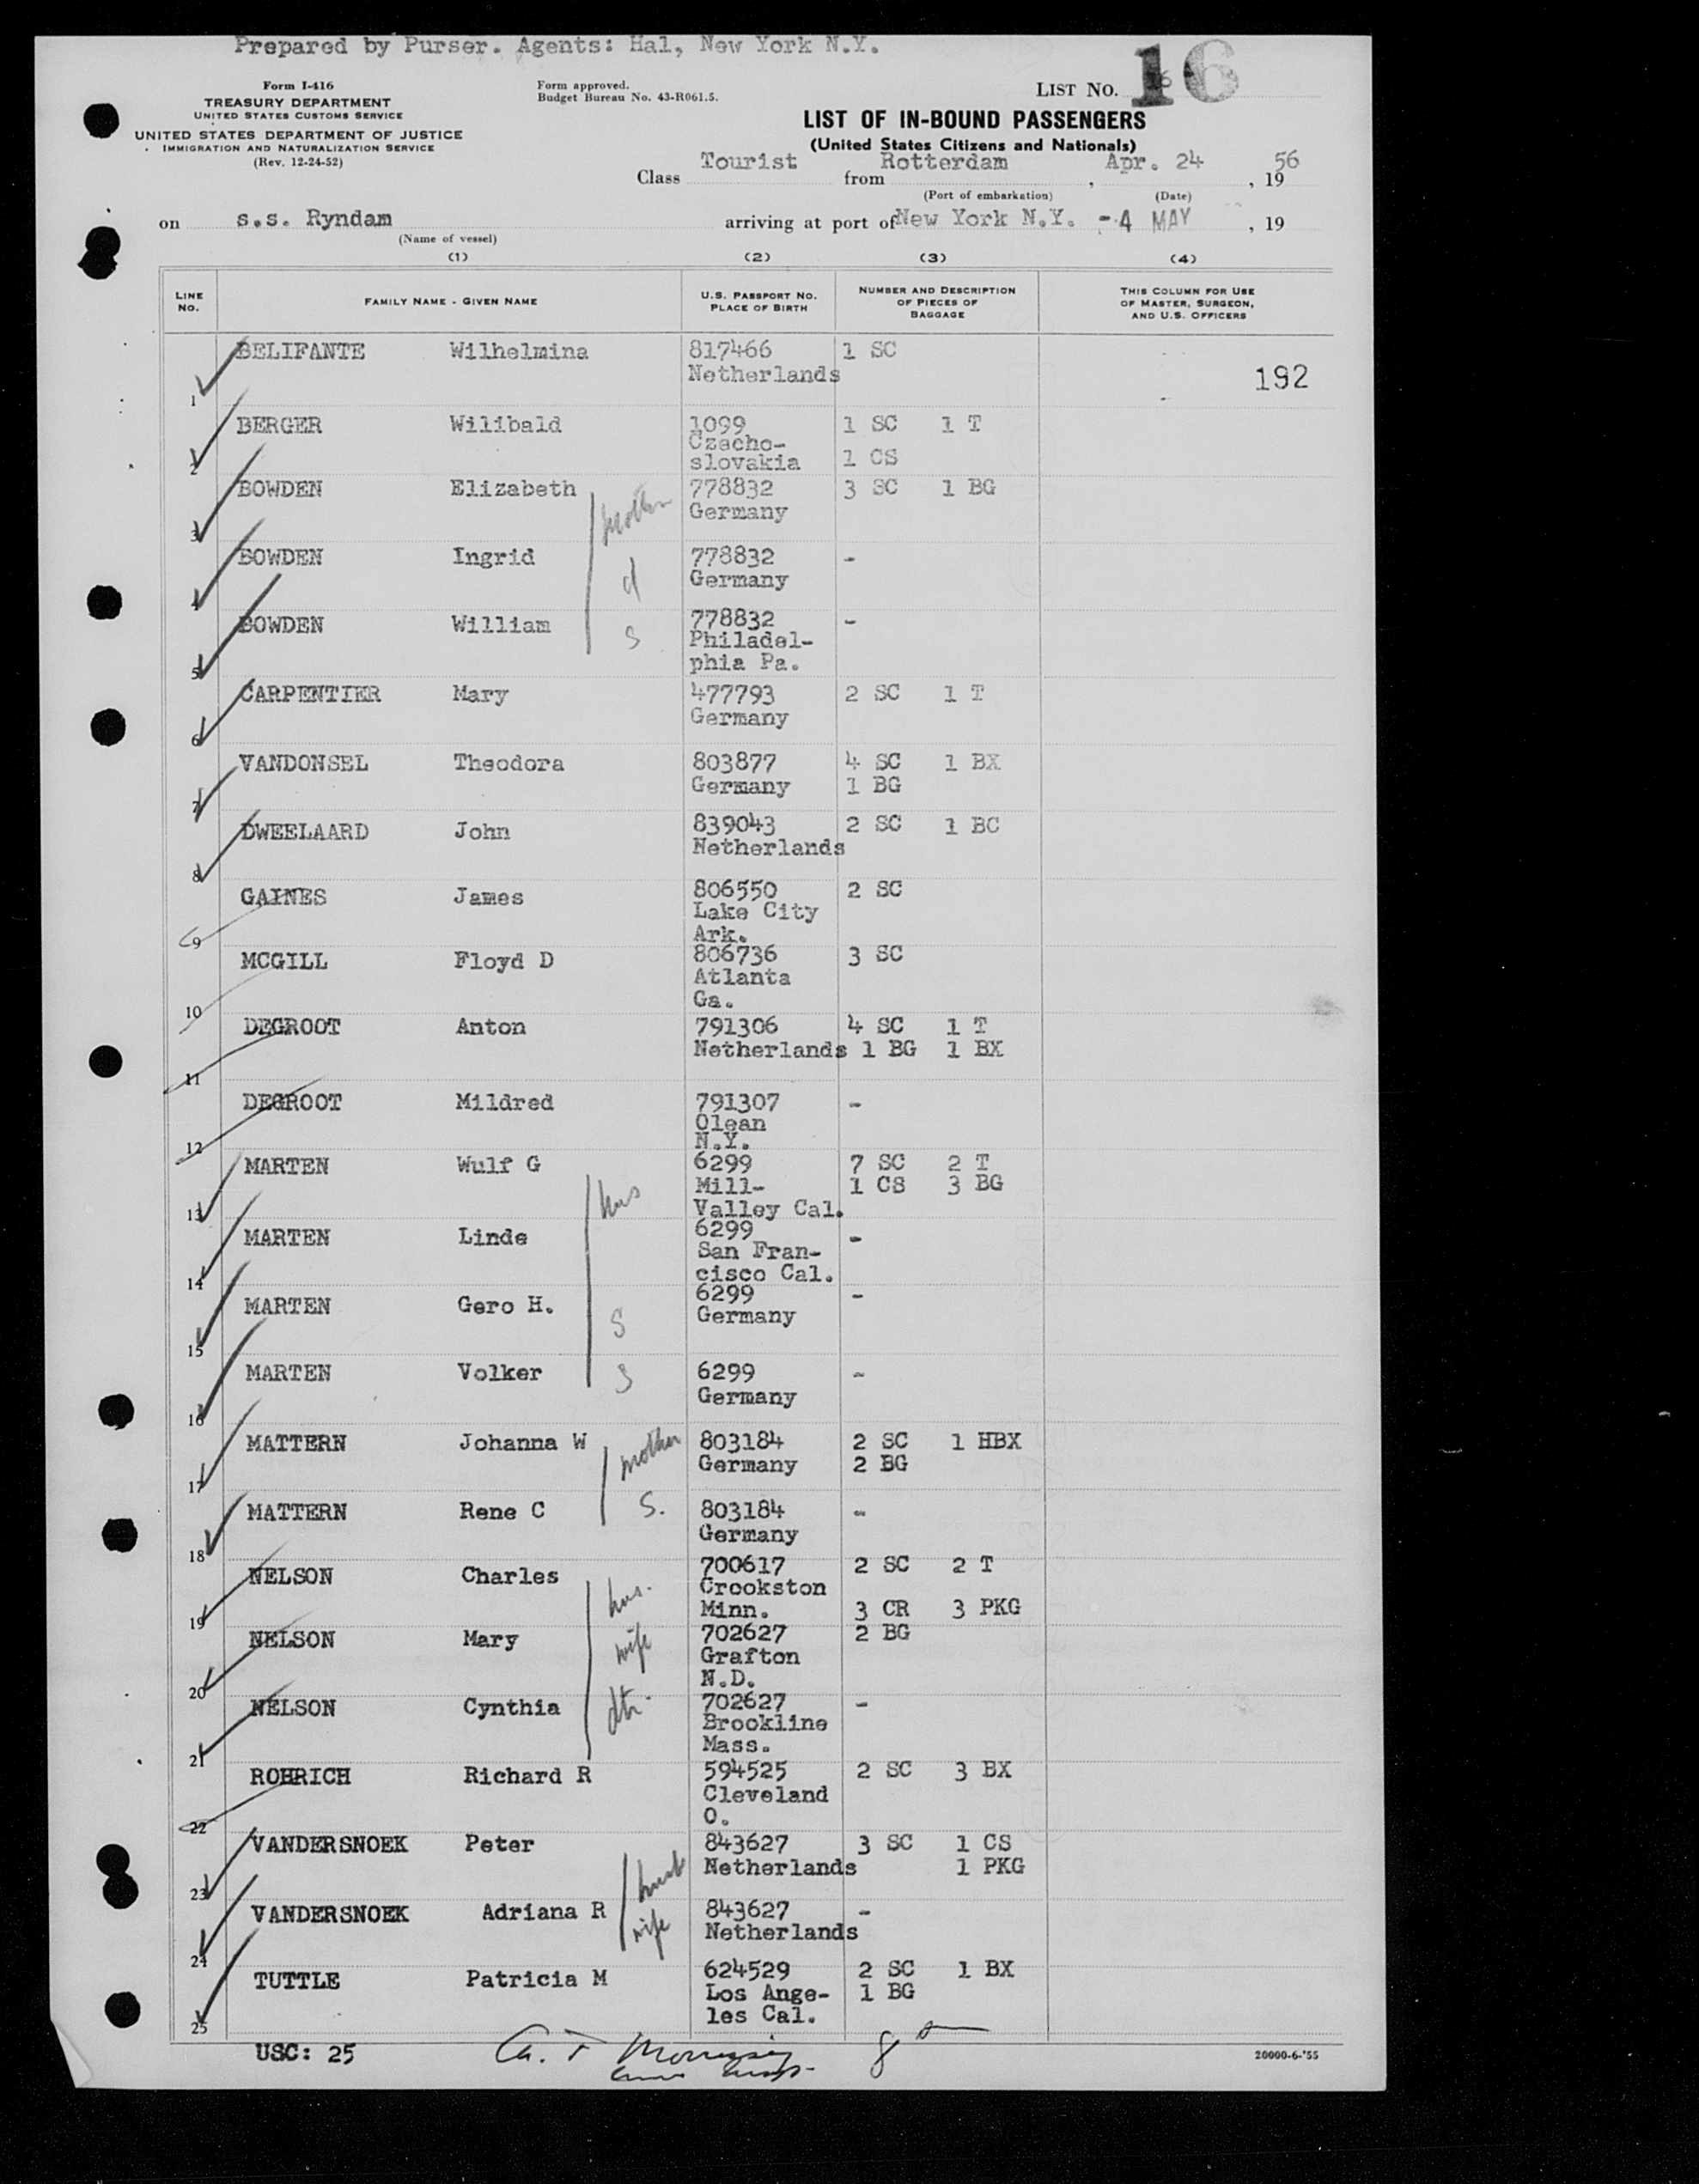 Prepared by Purser. Agents: Hal, New York N.Y.
Form I-416
TREASURY DEPARTMENT
UNITED STATES CUSTOMS SERVICE
UNITED STATES DEPARTMENT OF JUSTICE
IMMIGRATION AND NATURALIZATION SERVICE
(Rev. 12-24-52)
Form approved.
Budget Bureau No. 43-R061.5.
LIST NO. 16
LIST OF IN-BOUND PASSENGERS
(United States Citizens and Nationals)
Class Tourist from Rotterdam, Apr. 24, 1956
(Port of embarkation) (Date)
on s.s. Ryndam arriving at port of New York N.Y. -4 MAY, 19
(Name of vessel)
(1) (2) (3) (4)
LINE NO. FAMILY NAME - GIVEN NAME U.S. PASSPORT NO. PLACE OF BIRTH NUMBER AND DESCRIPTION OF PIECES OF BAGGAGE THIS COLUMN FOR USE OF MASTER, SURGEON, AND U.S. OFFICERS
BELIFANTE Wilhelmina 817466 1 SC
1 Netherlands 192
BERGER Wilibald 1099 1 SC 1 T
Czecho-
2 slovakia 1 CS
BOWDEN Elizabeth mother 778832 3 SC 1 BG
3 Germany
BOWDEN Ingrid d 778832 -
4 Germany
BOWDEN William s 778832 -
Philadel-
5 phia Pa.
CARPENTIER Mary 477793 2 SC 1 T
6 Germany
VANDONSEL Theodora 803877 4 SC 1 BX
7 Germany 1 BG
DWEELAARD John 839043 2 SC 1 BC
8 Netherlands
GAINES James 806550 2 SC
Lake City
9 Ark.
MCGILL Floyd D 806736 3 SC
Atlanta
10 Ga.
DEGROOT Anton 791306 4 SC 1 T
11 Netherlands 1 BG 1 BX
DEGROOT Mildred 791307 -
Olean
12 N.Y.
MARTEN Wulf G hus 6299 7 SC 2 T
Mill- 1 CS 3 BG
13 Valley Cal.
MARTEN Linde 6299 -
San Fran-
14 cisco Cal.
MARTEN Gero H. S 6299 -
15 Germany
MARTEN Volker S 6299 -
16 Germany
MATTERN Johanna W mother 803184 2 SC 1 HBX
17 Germany 2 BG
MATTERN Rene C S. 803184 -
18 Germany
NELSON Charles hus. 700617 2 SC 2 T
Crookston
19 Minn. 3 CR 3 PKG
NELSON Mary wife 702627 2 BG
Grafton
20 N.D.
NELSON Cynthia dtr. 702627 -
Brookline
21 Mass.
ROHRICH Richard R 594525 2 SC 3 BX
Cleveland
22 O.
VANDERSNOEK Peter husb 843627 3 SC 1 CS
23 Netherlands 1 PKG
VANDERSNOEK Adriana R wife 843627 -
24 Netherlands
TUTTLE Patricia M 624529 2 SC 1 BX
Los Ange- 1 BG
25 les Cal.
USC: 25
20000-6-'55